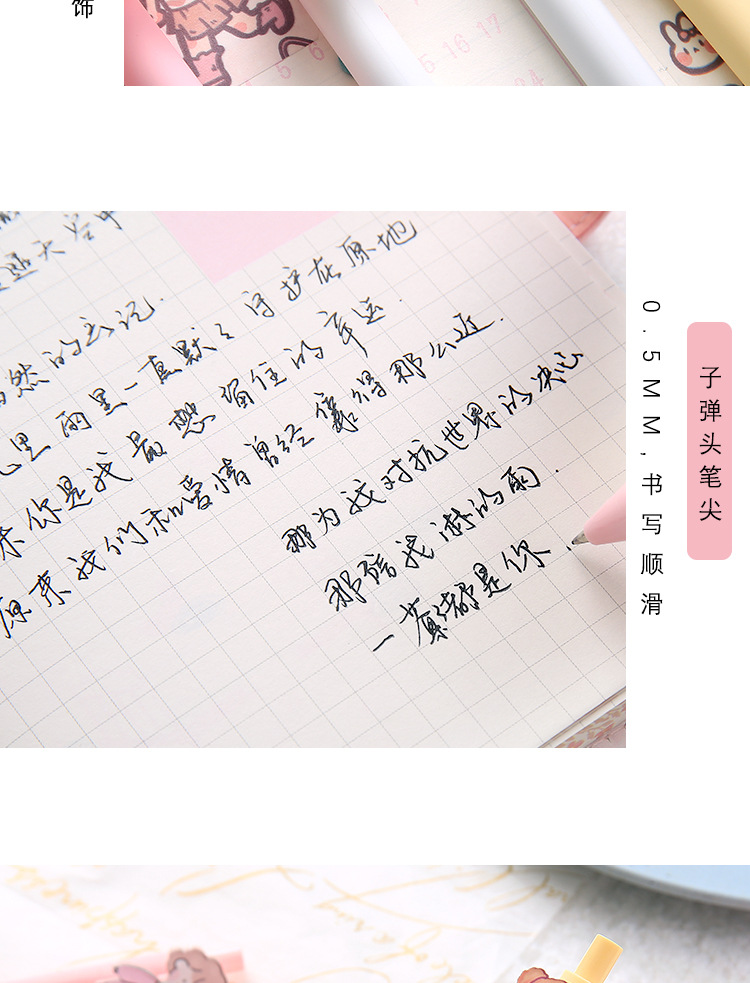 饰
5 6
5·16·17
24
天空中
然的忘记.
心里雨里一直默々守护在原地
来你是我最想留住的幸运.
原来我们和爱情曾经靠得那么近.
那为我对抗世界的决心
那陪我淋的雨.
一幕幕都是你.
子弹头笔尖
0.5MM,书写顺滑